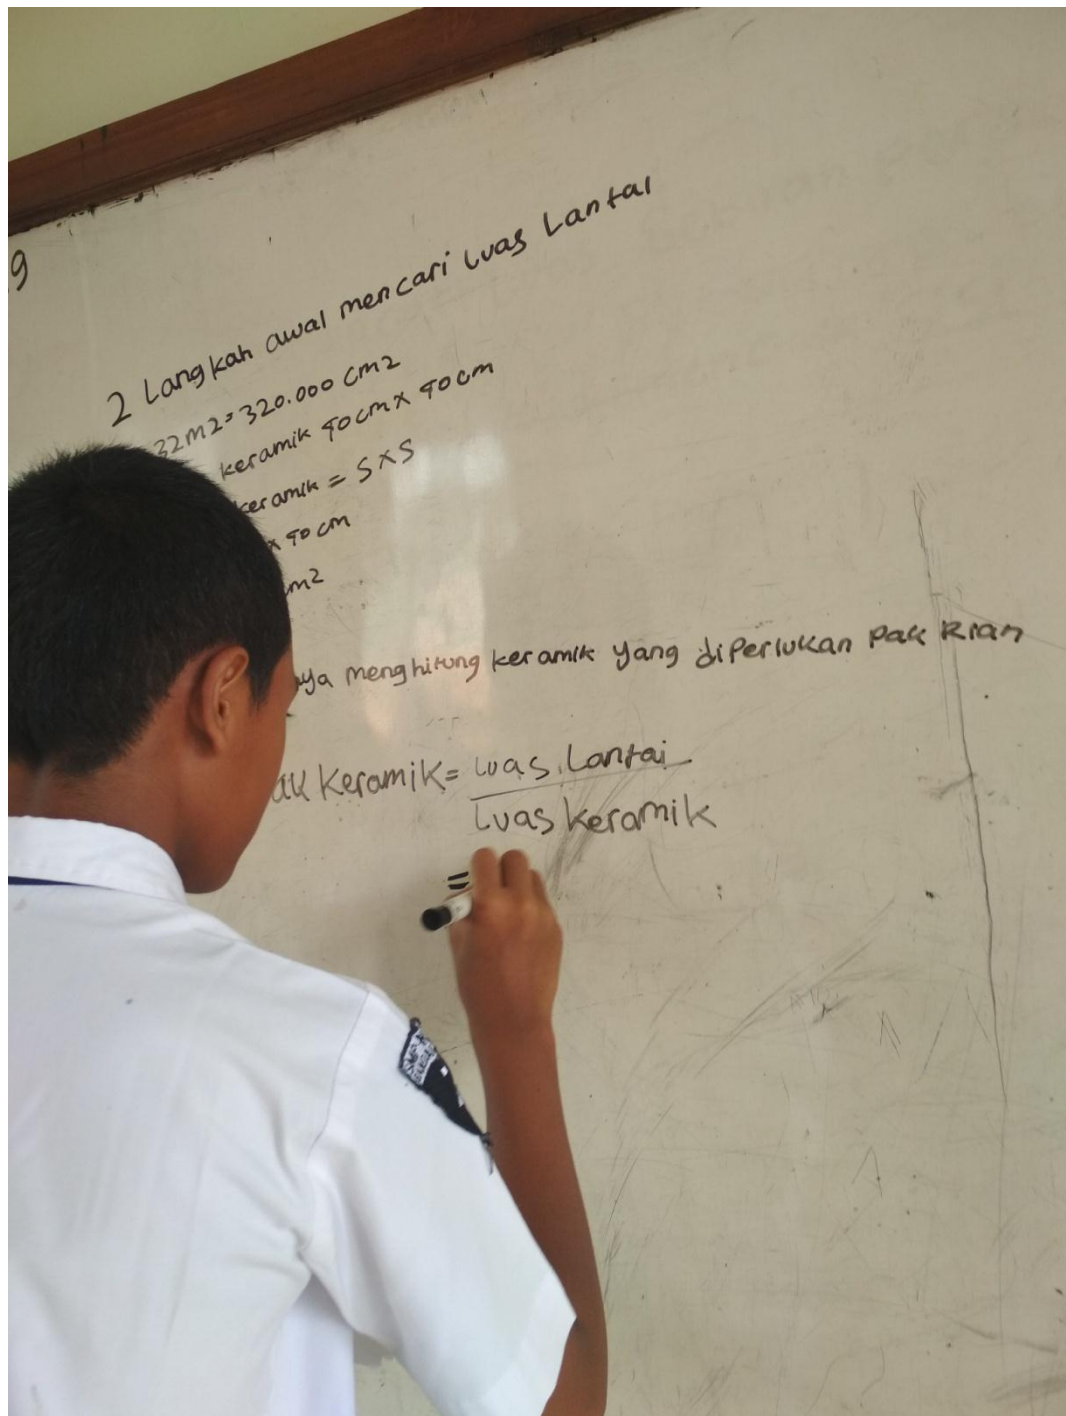 9
2 Langkah awal mencari luas Lantai
32m2 = 320.000 cm2
keramik 40cm x 40cm
keramik = S x S
x 40 cm
cm2
nya menghitung keramik yang diperlukan pak Rian
ak keramik = luas Lantai
luas keramik
=